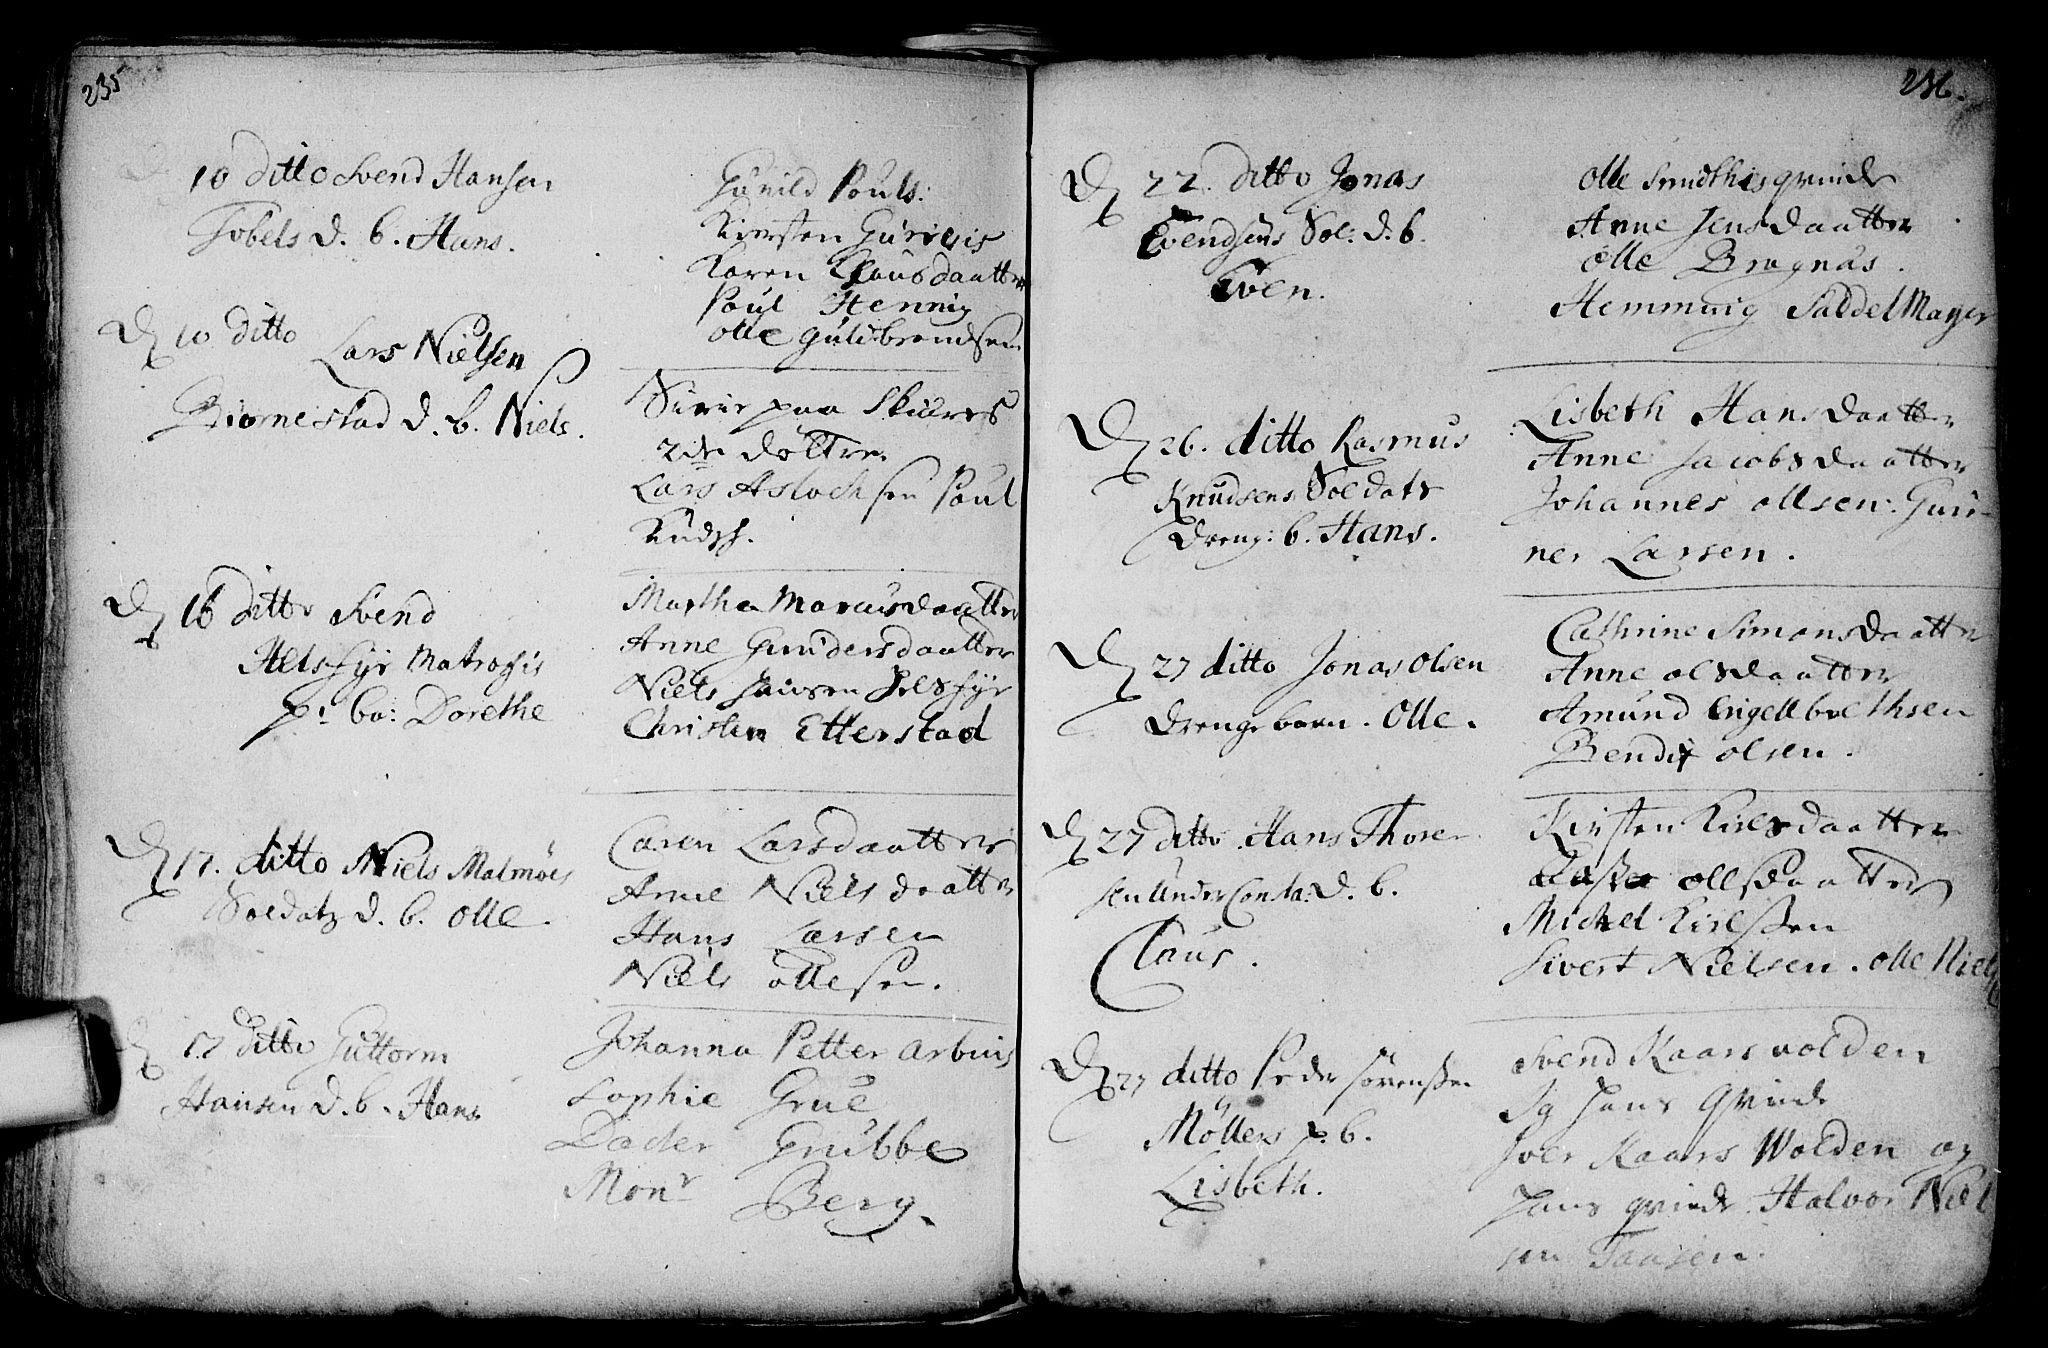 235
10 ditto Svend Hansen
Tobels d. b. Hans.
Gunild Pouls:
Kiersten Guriisis
Karen Clausdaatter
Poul Hennig
Olle Guldbrandsen
D 10 ditto Lars Nielsen
Biornestad d. b. Niels.
Sirie paa Skiærrs
2de døttre
Lars Aslachsen Poul
Kudsk.
D 16 ditto Svend
Helsfyr Matrosis
p. ba: Dorethe
Marthe Marcusdaatter
Anne Gundersdaatter
Niels Jansen Helsfyr
Christen Etterstad
D 17. ditto Niels Malmøes
Soldatz d. b. Olle.
Caren Larsdaatter
Anne Nielsdaatter
Hans Larsen
Niels ollesen.
D 17 ditto Guttorm
Hansen d. b. Hans
Johanna Petter Arbins
Sophie Grue
Dæder Grubbe
Monr Berg.
236.
D 22. ditto Jonas
Evendsens Sol: d. b.
Even.
Olle Smidthis qvinde
Anne Jensdaatter
Olle Bragnæs.
Hemmuig SaddelMager
D 26. ditto Rasmus
Knudsens Soldats
dreng: b. Hans.
Lisbeth Hansdaatter
Anne Jacobsdaatter
Johannes ollsen: Gun-
ner Larsen.
D 27 ditto Jonas Olsen
drengebarn. Olle.
Cathrine Simonsdaatter
Anne olsdaatter
Amund Engellbrethsen
Bendix olsen.
D 27 ditto. Hans Thore
sen UnderConsta: d. b.
Claus.
Kirsten Nielsdaatter
ollsdaatter
Michel Nielssen
Sivert Nielsen. olle Niels
D 27 ditto Peder Sørenssen
Møllers p. b.
Lisbeth.
Svend Kaarsvolden
Sg Jens Qvinde
Iver Kaars Wolden og
Jans qvinde Halvor Niel
sen Taasen.